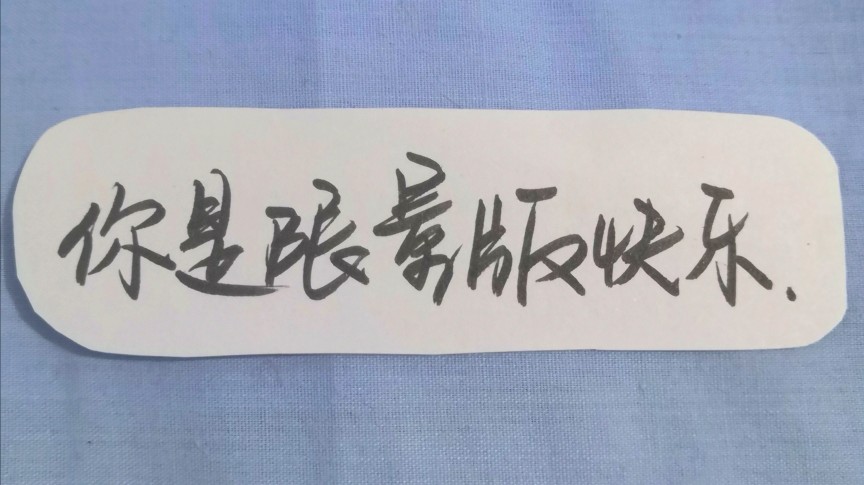 你是限量版快乐.